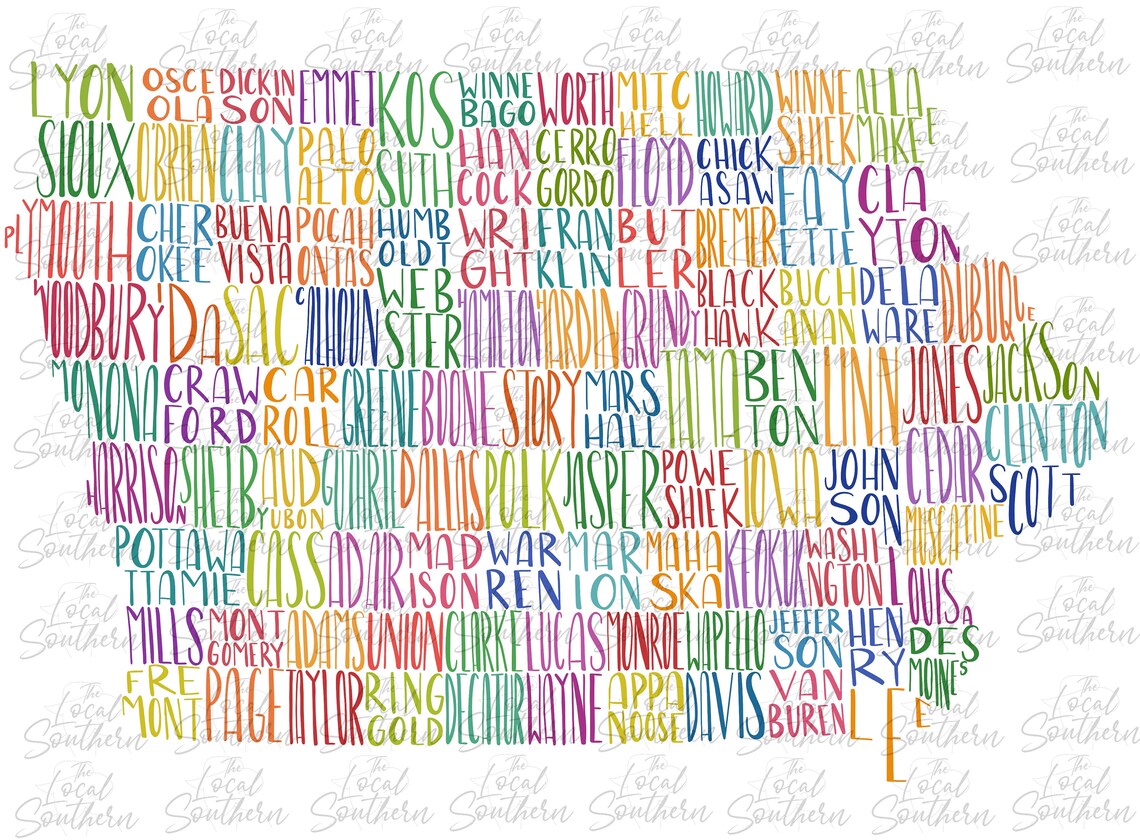 LYON OSCEOLA DICKINSON EMMET KOSSUTH WINNEBAGO WORTH MITCHELL HOWARD WINNESHIEK ALLAMAKEE
SIOUX O'BRIEN CLAY PALO ALTO HANCOCK CERRO GORDO FLOYD CHICKASAW FAYETTE CLAYTON
PLYMOUTH CHEROKEE BUENA VISTA POCAHONTAS HUMBOLDT WRIGHT FRANKLIN BUTLER BREMER
WOODBURY IDA SAC CALHOUN WEBSTER HAMILTON HARDIN GRUNDY BLACKHAWK BUCHANAN DELAWARE DUBUQUE
MONONA CRAWFORD CARROLL GREENE BOONE STORY MARSHALL TAMA BENTON LINN JONES JACKSON
CLINTON
HARRISON SHELBY AUDUBON GUTHRIE DALLAS POLK JASPER POWESHIEK IOWA JOHNSON CEDAR SCOTT
MUSCATINE
POTTAWATTAMIE CASS ADAIR MADISON WARREN MARION MAHASKA KEOKUK WASHINGTON LOUISA
MILLS MONTGOMERY ADAMS UNION CLARKE LUCAS MONROE WAPELLO JEFFERSON HENRY DES MOINES
FREMONT PAGE TAYLOR RINGGOLD DECATUR WAYNE APPANOOSE DAVIS VAN BUREN LEE
The Local Southern